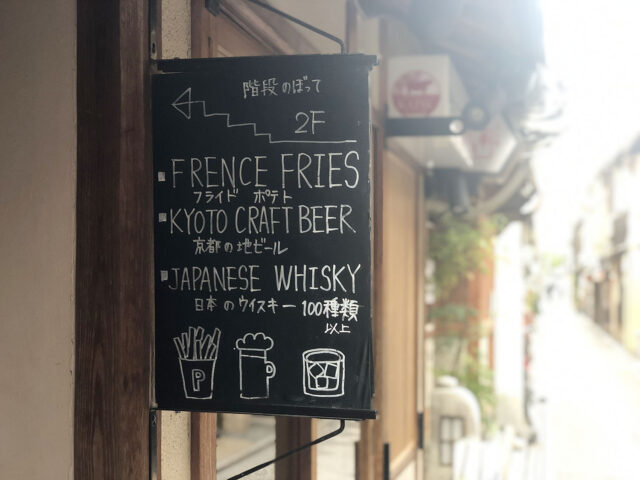 階段のぼって
2F
FRENCE FRIES
フライド ポテト
KYOTO CRAFT BEER
京都の地ビール
JAPANESE WHISKY
日本のウイスキー100種類
以上
P